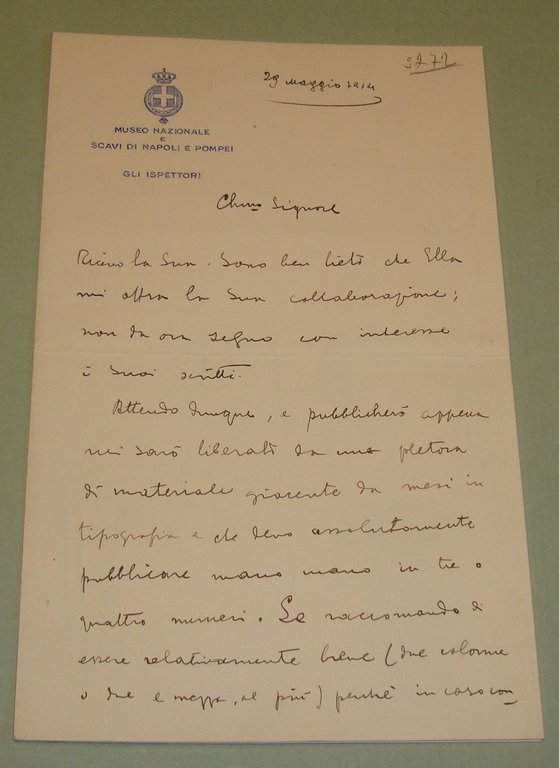 3272
29 Maggio 1914
MUSEO NAZIONALE
E
SCAVI DI NAPOLI E POMPEI
GLI ISPETTORI
Chmo Signore
Ricevo la Sua. Sono ben lieto che Ella
mi offra la Sua collaborazione;
non da ora seguo con interesse
i Suoi scritti.
Attendo dunque, e pubblicherò appena
mi sarò liberato da una pletora
di materiale giacente da mesi in
tipografia e che devo assolutamente
pubblicare mano mano in tre o
quattro numeri. Le raccomando di
essere relativamente breve (due colonne
o due e mezza, al più) perchè in caso con-